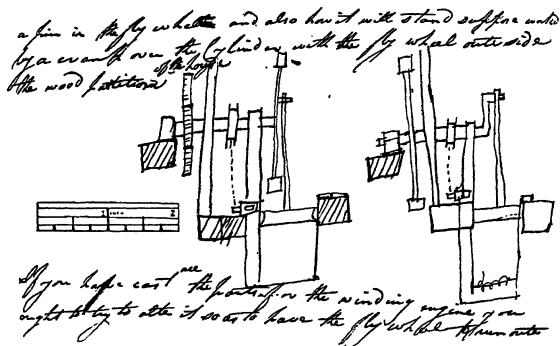 a pin in the fly wheel and also how it will stand suppose worked
by a crank over the Cylinder with the fly wheel outside
of the house
the wood partition
1 2
If you have cast all the parts for the winding engine you
ought to try to alter it so as to have the fly wheel to run outside